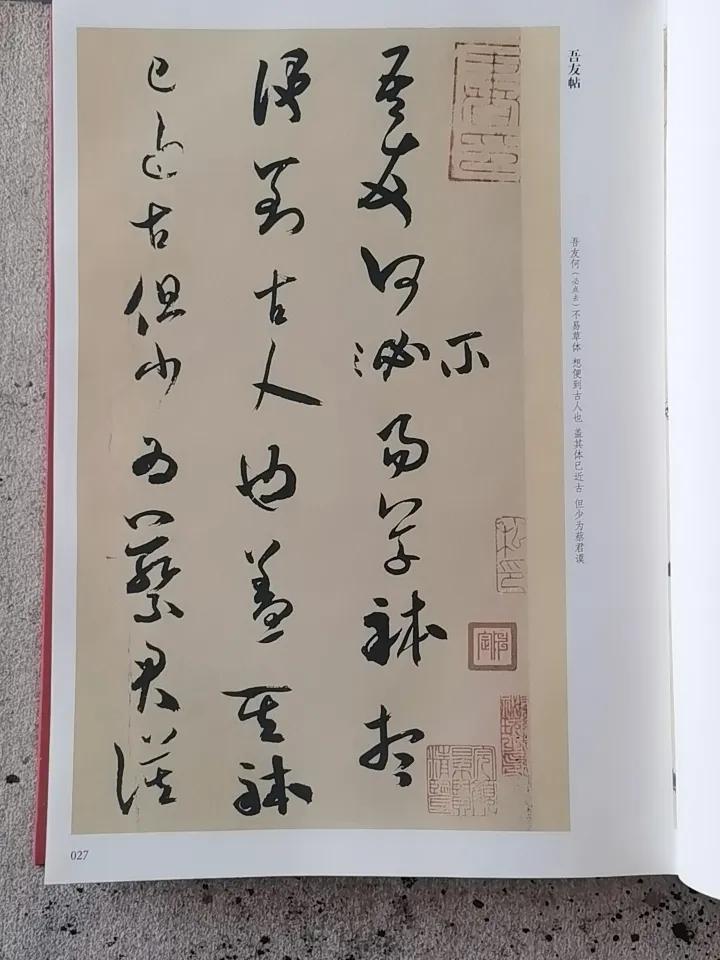 吾友帖
吾友何(必点去)不易草体 想便到古人也 盖其体已近古 但少为蔡君谟
吾友何必不易草体想
便到古人也盖其体
已近古但少为蔡君谟
027